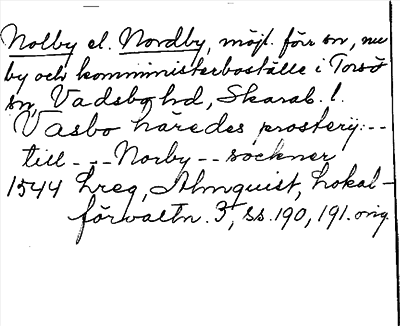 Nolby el. Nordby, möjl. förr sn, nu
by och komministerboställe i Torsö
sn, Vadsbo hd, Skarab. l.
Vasbo häredes prostery: --
till - -- Norby -- sockner
1544 Lreg, Almquist, Lokal-
förvaltn. 3, ss. 190, 191. orig